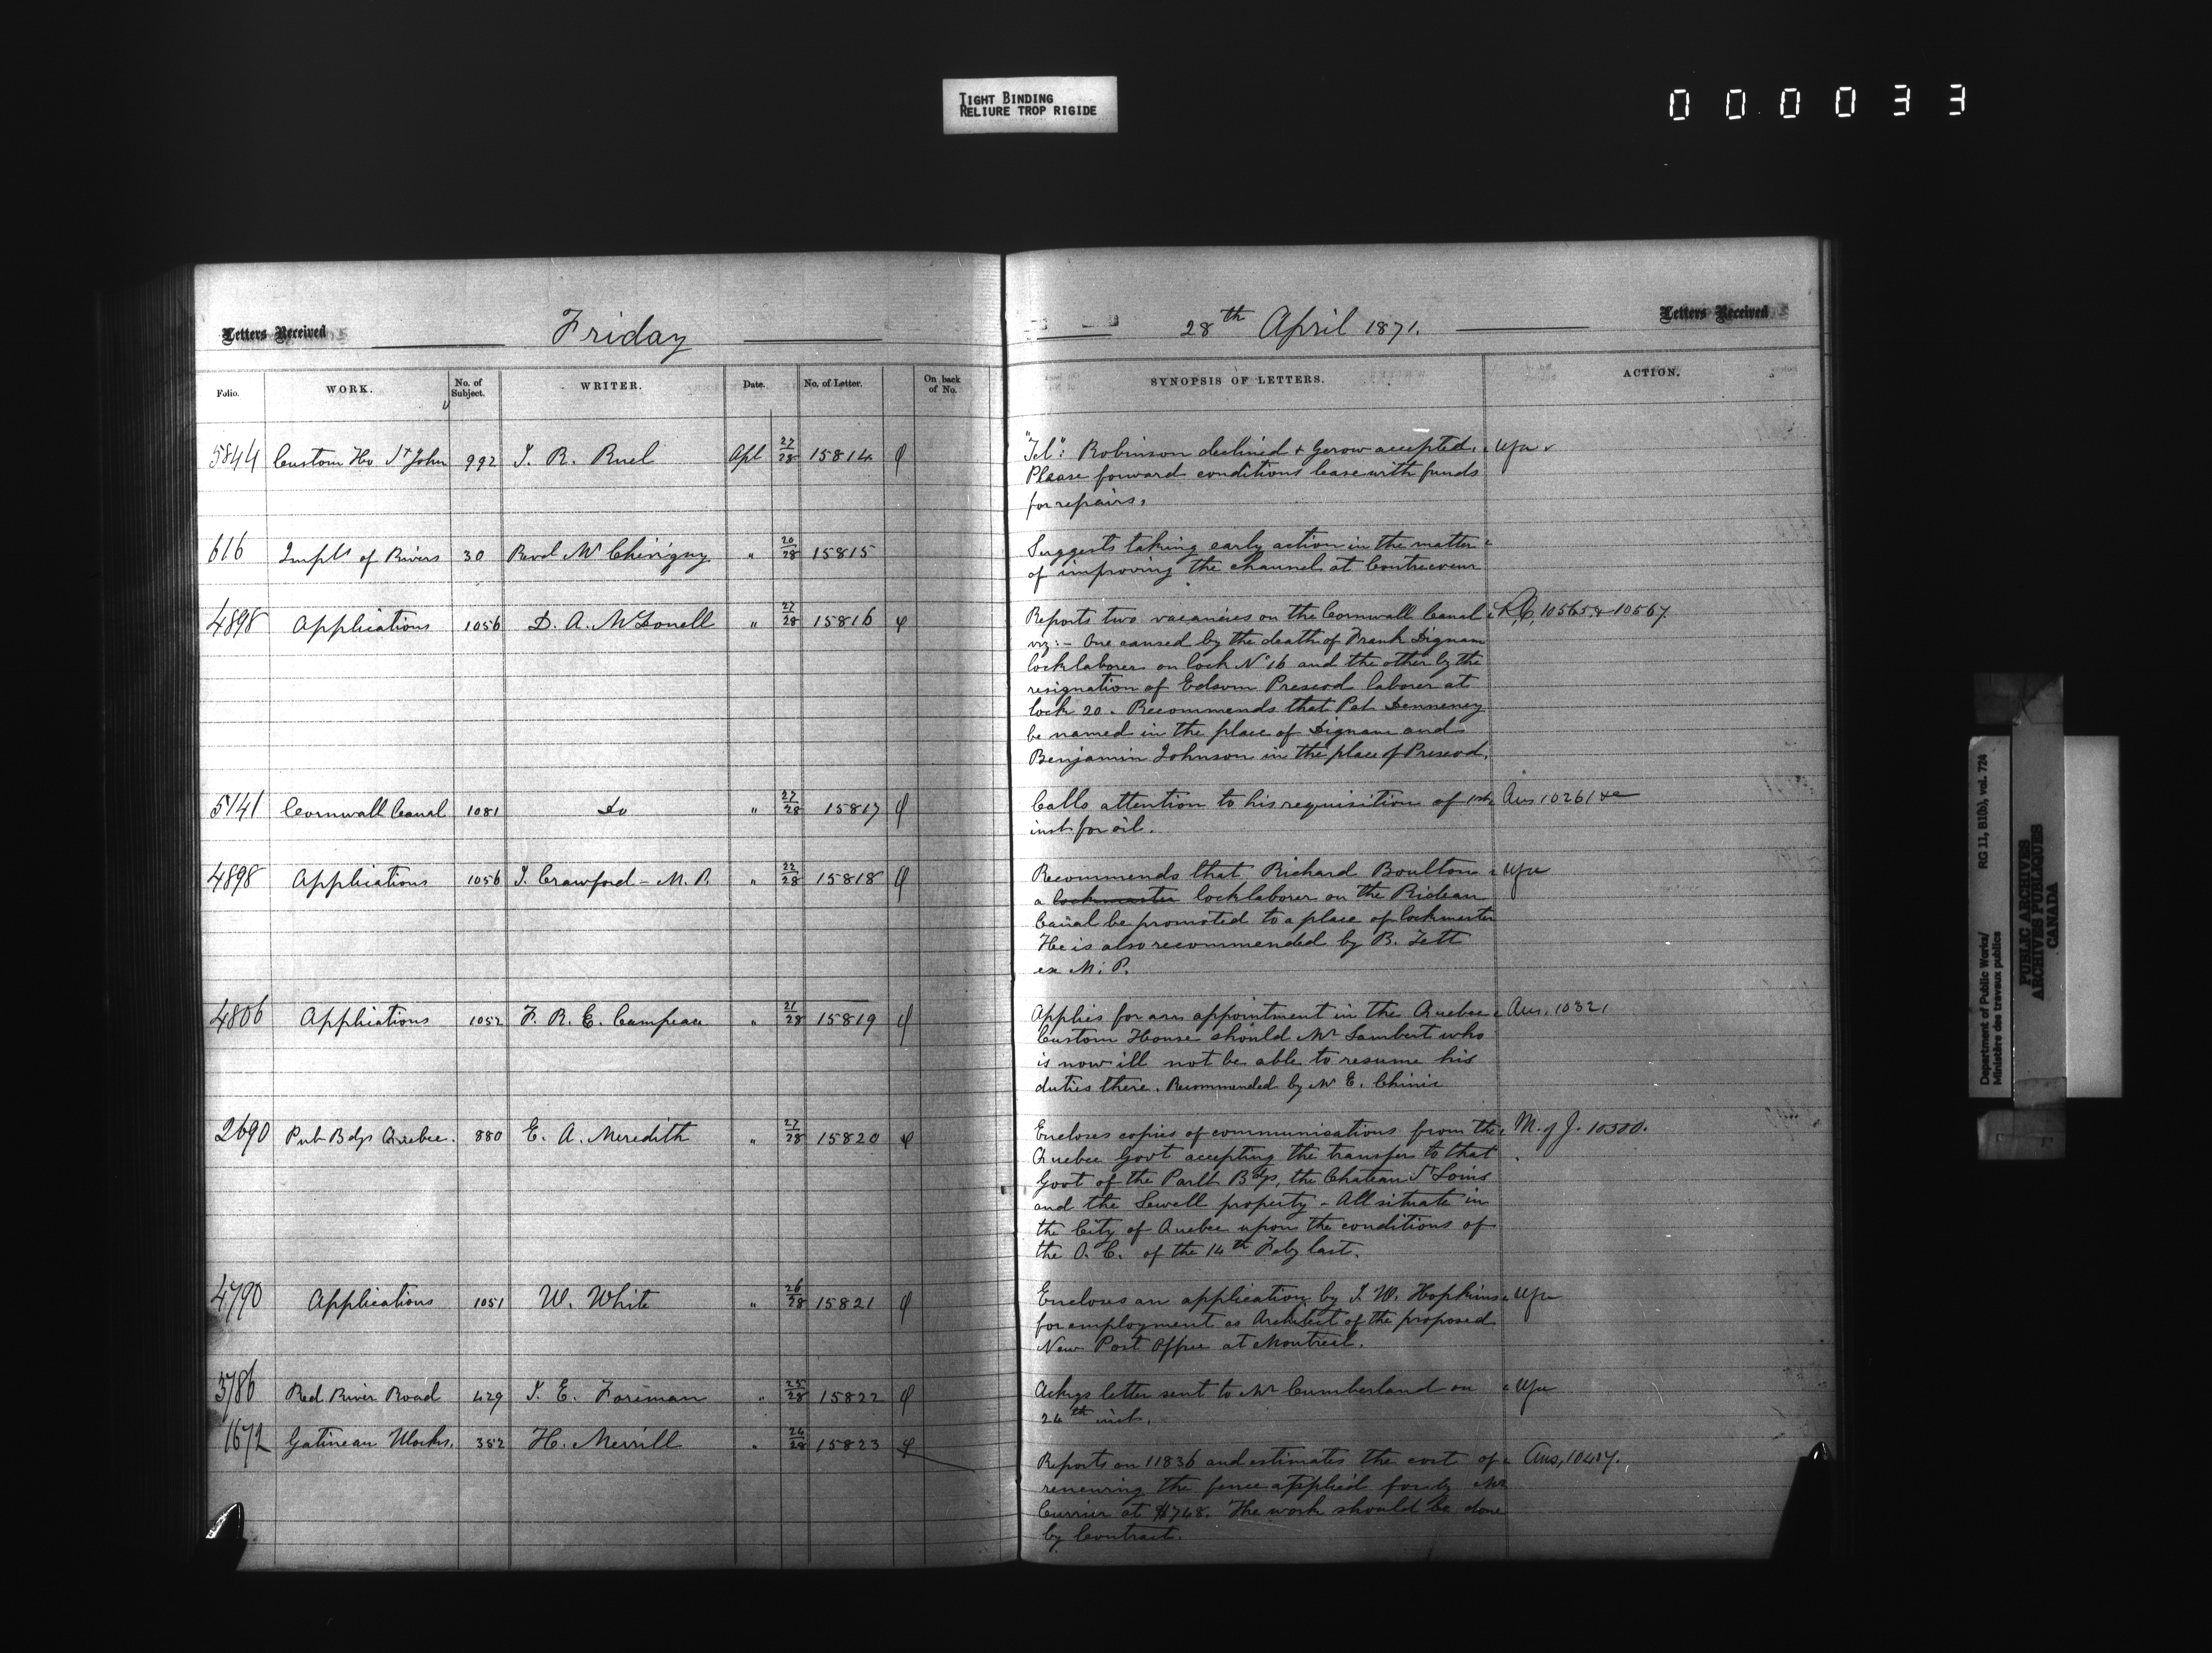 TIGHT BINDING
RELIURE TROP RIGIDE
000033
Letters Received
Friday
Folio. WORK. No. of Subject. WRITER. Date. No. of Letter. On back of No.
5844 Custom Ho St John 992 J. R. Ruel Apl 27/28 15814 φ
616 Impts of Rivers 30 Revd Mr Chivigny " 20/28 15815
4898 Applications 1056 D. A. McDonell " 27/28 15816 φ
5141 Cornwall Canal 1081 do " 27/28 15817 φ
4898 Applications 1056 J. Crawford - M. P. " 22/28 15818 φ
4806 Applications 1052 F. R. E. Campeau " 21/28 15819 φ
2690 Pub Bdgs Quebec. 880 E. A. Meredith " 27/28 15820 φ
4790 Applications 1051 W. White " 26/28 15821 φ
3786 Red River Road 429 J. E. Foreman " 25/28 15822 φ
1672 Gatineau Works. 352 H. Merrill " 24/28 15823 φ
28th April 1871.
Letters Received
SYNOPSIS OF LETTERS. ACTION.
"Tel": Robinson declined & Gerow accepted.
Please forward conditions lease with funds
for repairs.
Suggests taking early action in the matter
of improving the channel at Contrecoeur
Reports two vacancies on the Cornwall Canal 10565 & 10567
viz:- One caused by the death of Frank Dignam
locklaborer on lock No 16 and the other by the
resignation of Edsom Prescod laborer at
lock 20. Recommends that Pat Denneney
be named in the place of Dignam and
Benjamin Johnson in the place of Prescod.
Calls attention to his requisition of 1st Ans 10261
inst for oil.
Recommends that Richard Boulton
a lockmaster locklaborer on the Rideau
Canal be promoted to a place of lockmaster
He is also recommended by B. Tett
ex M. P.
Applies for an appointment in the Quebec Ans. 10321
Custom House should Mr Lambert who
is now ill not be able to resume his
duties there. Recommended by Mr E. Chinic
Encloses copies of communications from the M. of J. 10300.
Quebec Govt accepting the transfer to that
Govt of the Parlt Bdgs, the Chateau St Louis
and the Sewell property - All situate in
the City of Quebec upon the conditions of
the O. C. of the 14th Feby last.
Encloses an application by J. W. Hopkins
for employment as Architect of the proposed
New Post Office at Montreal.
Ackgs letter sent to Mr Cumberland on
24th inst.
Reports on 11836 and estimates the cost of Ans, 10417.
renewing the fence applied for by Mr
Currier at $748. The work should be done
by Contract.
Department of Public Works/
Ministère des travaux publics
RG 11, B1(b), vol. 724
PUBLIC ARCHIVES
ARCHIVES PUBLIQUES
CANADA